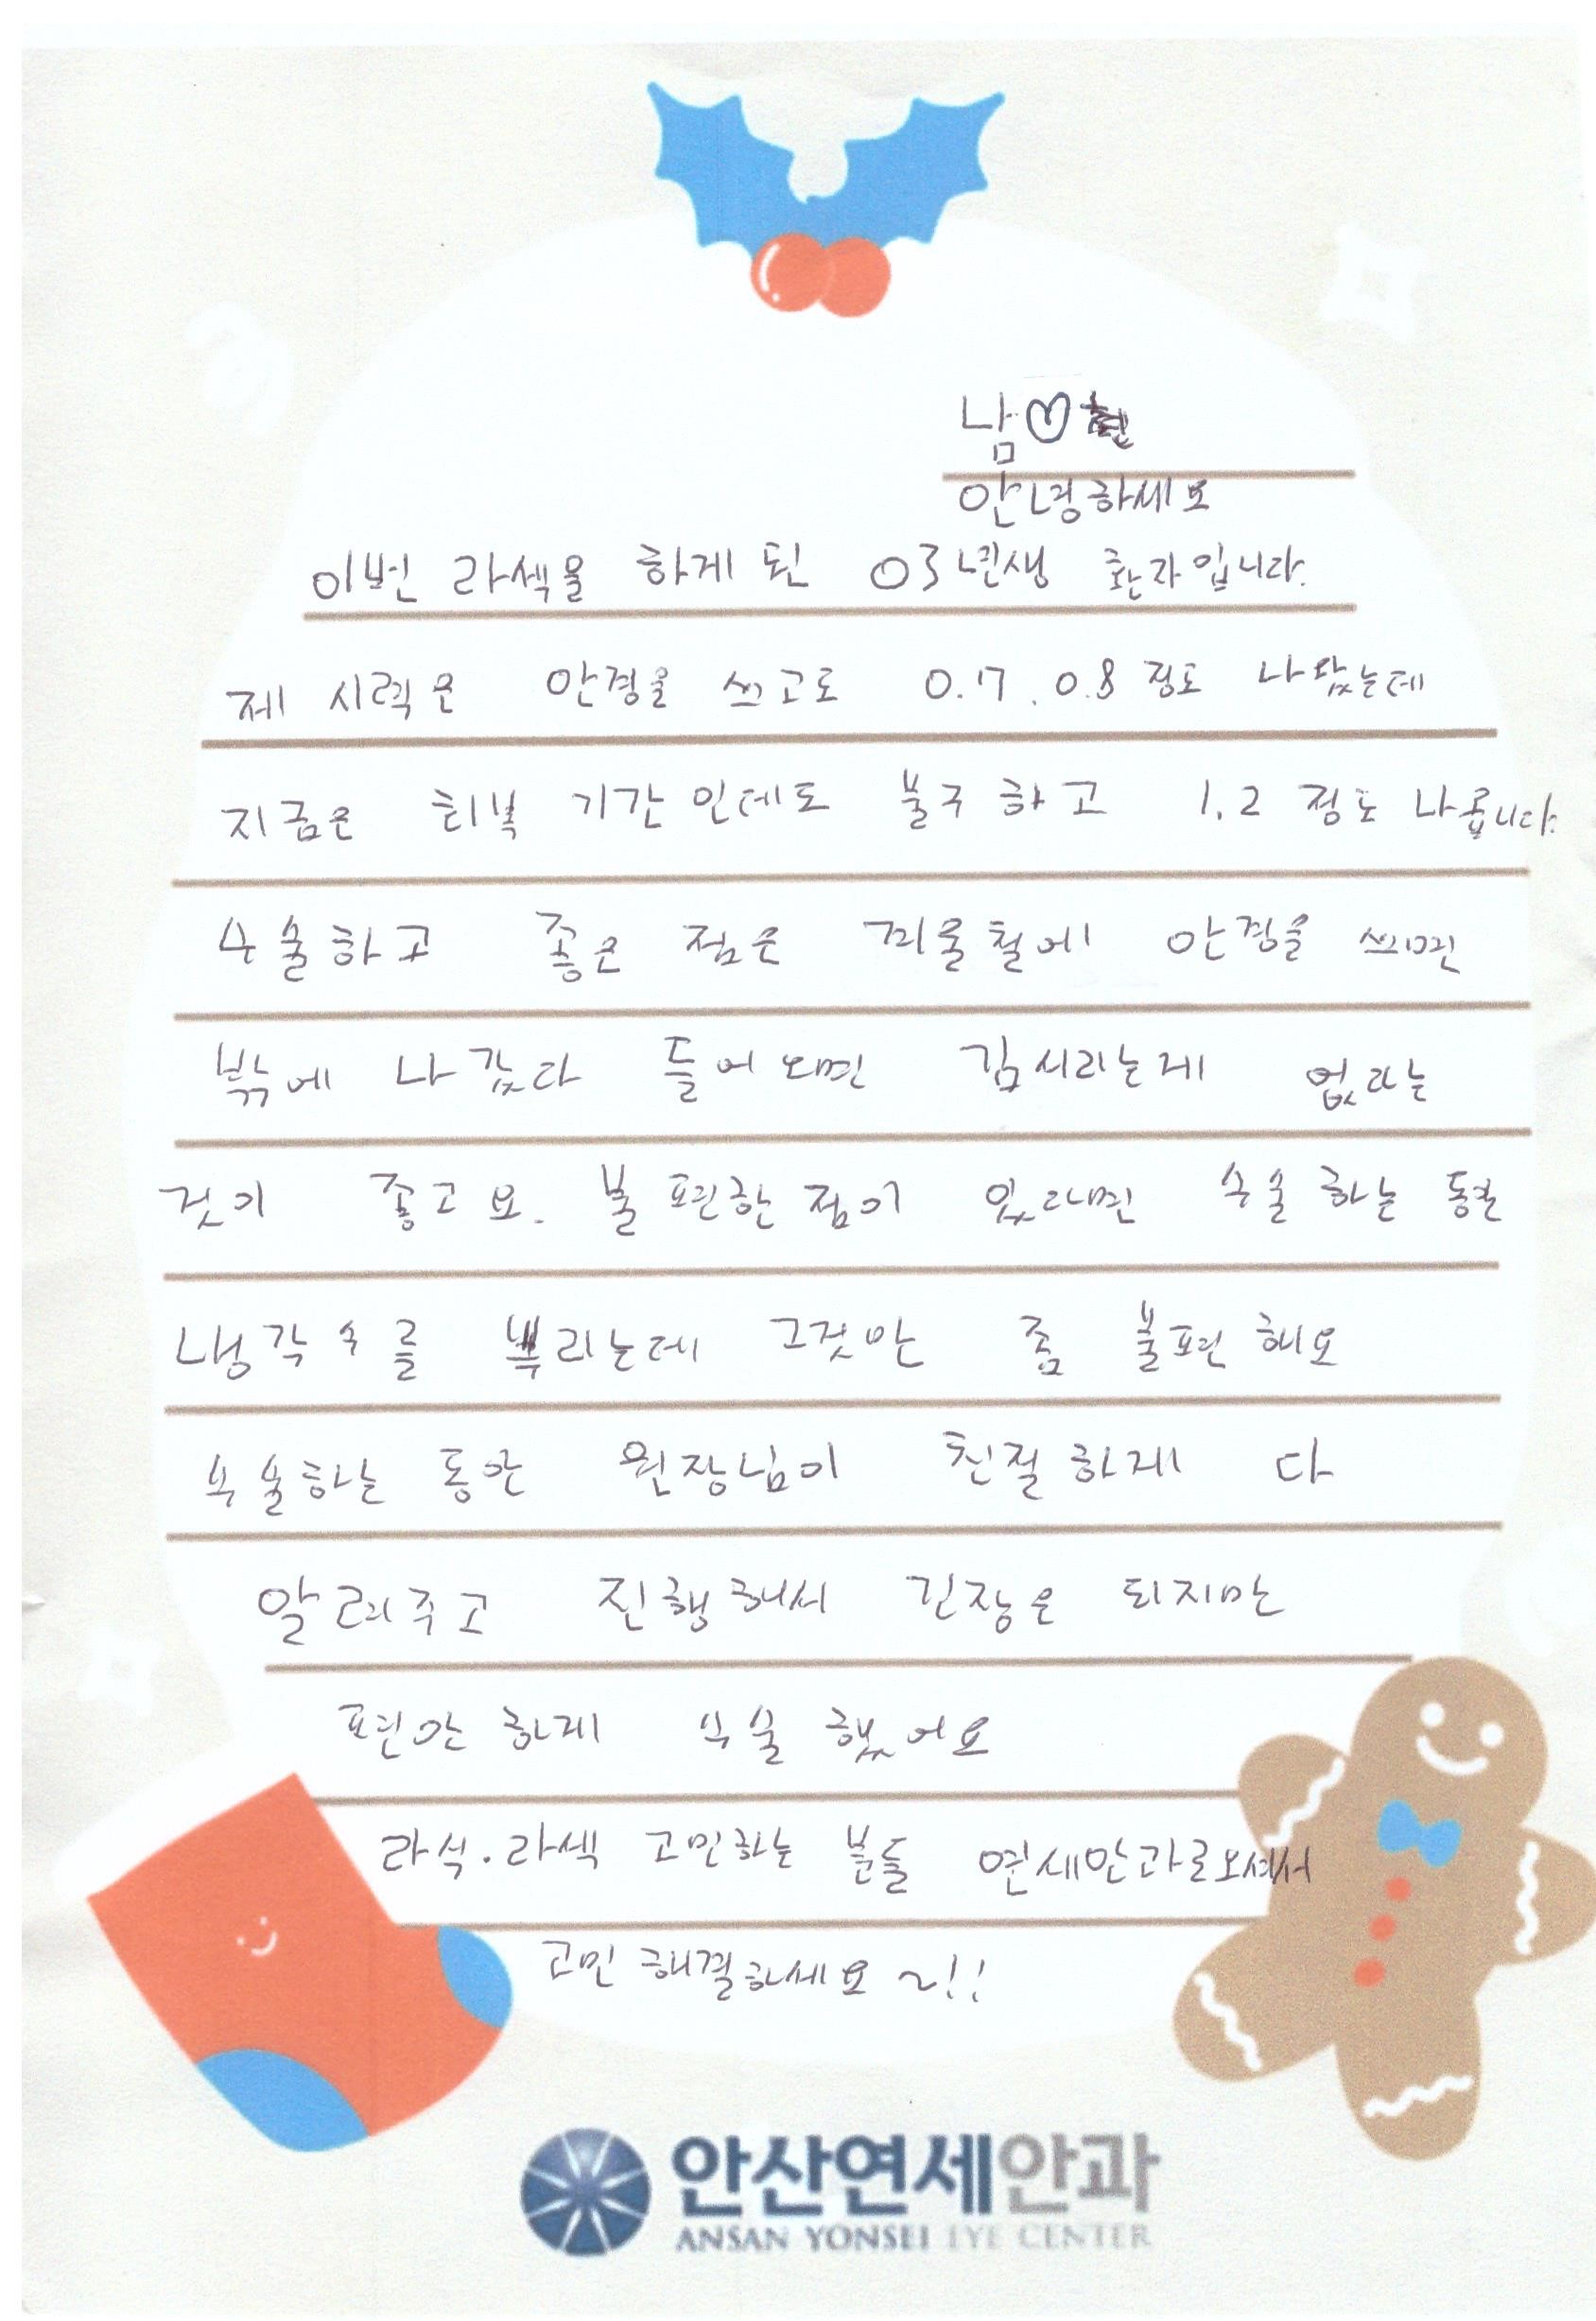 남♡현
안녕하세요
이번 라섹을 하게 된 03년생 환자입니다.
제 시력은 안경을 쓰고도 0.7, 0.8 정도 나왔는데
지금은 회복 기간인데도 불구하고 1.2 정도 나옵니다.
수술하고 좋은 점은 겨울철에 안경을 쓰면
밖에 나갔다 들어오면 김서리는게 없다는
것이 좋고요. 불편한 점이 있다면 수술 하는 동안
냉각수를 뿌리는데 그것만 좀 불편해요
수술하는 동안 원장님이 친절하게 다
알려주고 진행해서 긴장은 되지만
편안하게 수술 했어요
라식.라섹 고민하는 분들 연세안과로오셔서
고민 해결하세요 ~!!
안산연세안과
ANSAN YONSEI EYE CENTER